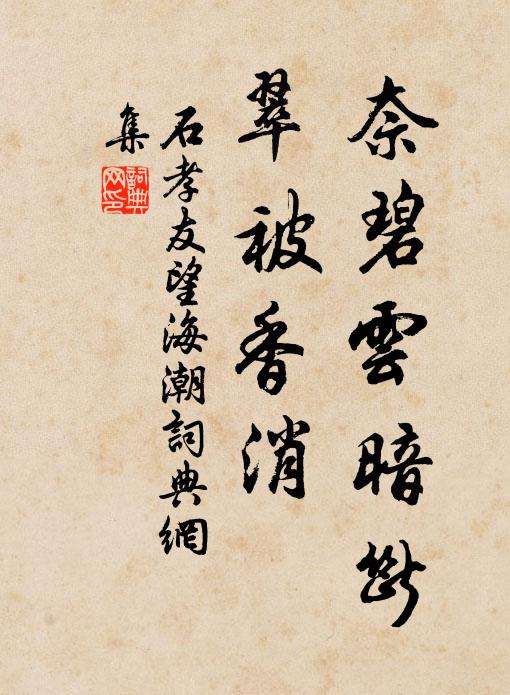 奈碧雲暗斷
翠被香消
石孝友望海潮詞典網
集
詞典
网印